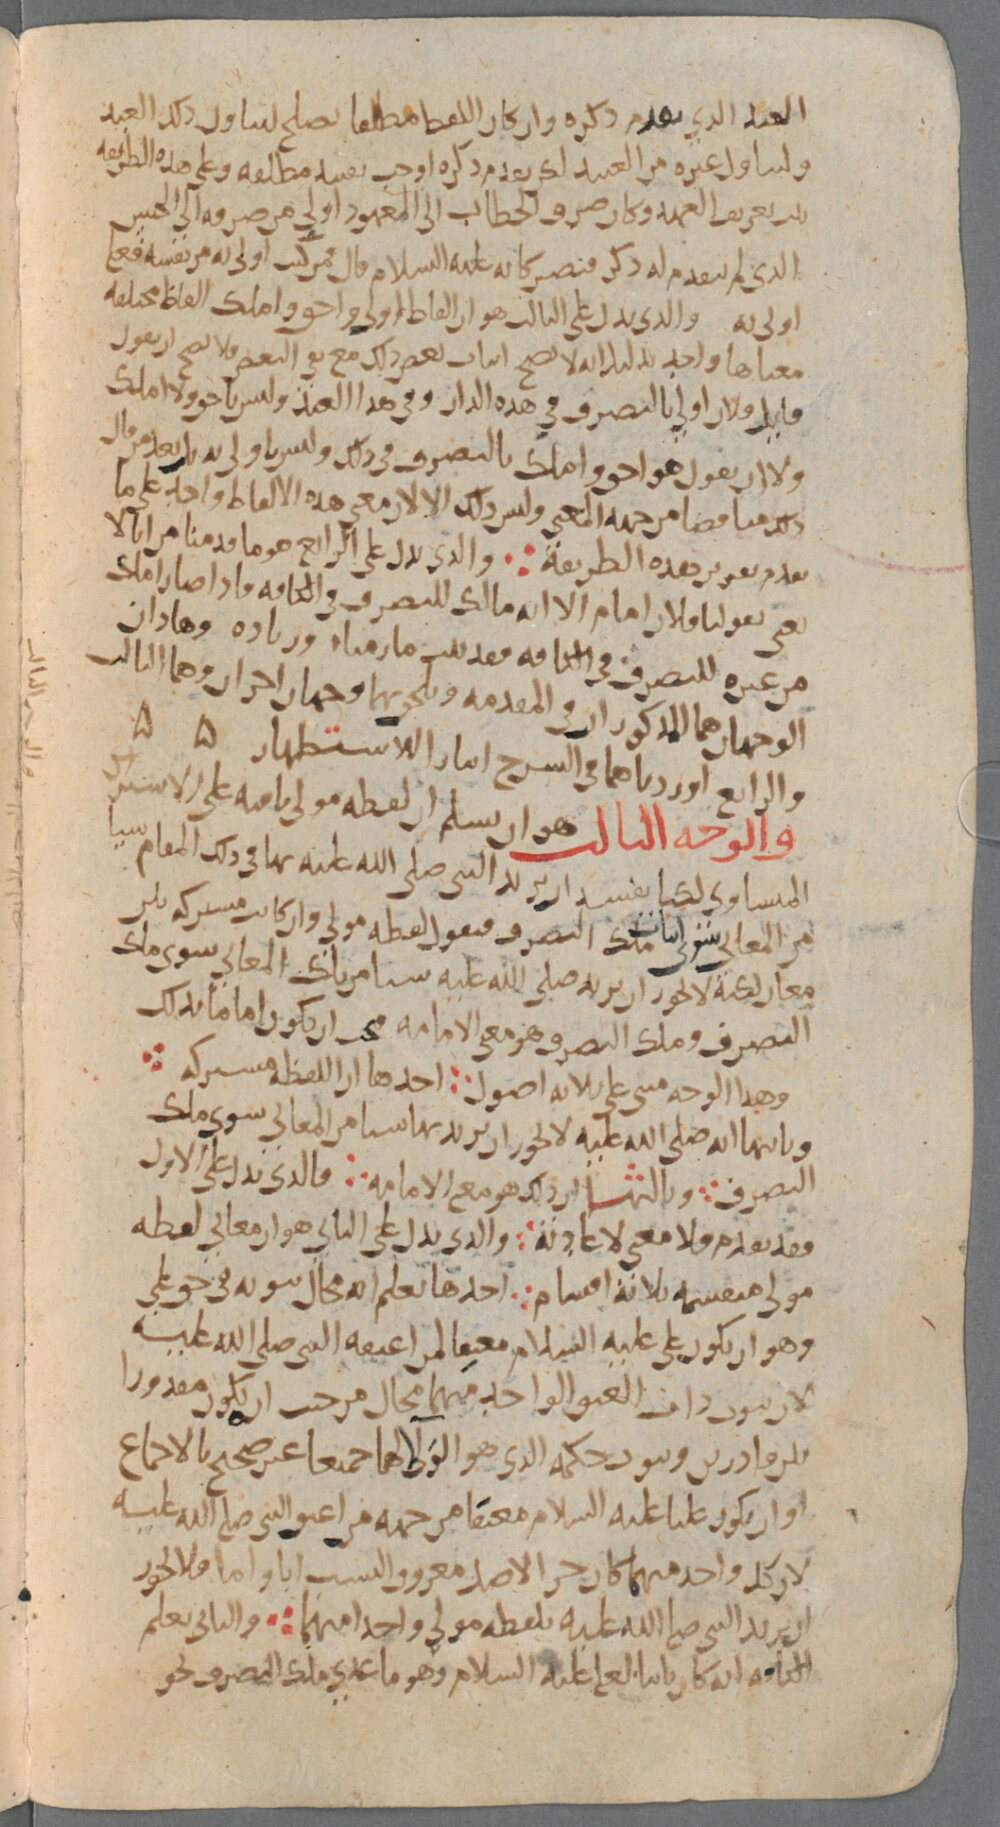 العبد الذي تقدم ذكره وان كان اللفظ مطلقا يصلح لتناول ذلك العبد
ولتناول غيره من العبيد لكن تقدم ذكره اوجب تقييد مطلقه وعلى هذه الطريقه
تعريف العهد وكان صرف الخطاب الى المعهود اولى من صرفه الى الجنس
الذي لم يتقدم له ذكر فتصير كانه عليه السلام قال فمن كنت اولى به من نفسه فعلي
اولى به والذي يدل على الثالث هو ان الفاظ اولى واحق واملك الفاظ مختلفه
معناها واحد بدليل انه لا يصح اثبات بعض ذلك مع نفي البعض فلا يصح ان يقول
قايل فلان اولى بالتصرف في هذه الدار وفي هذا العبد وليس باحق ولا املك
ولا ان يقول هو احق واملك بالتصرف في ذلك وليس باولى به بل يعد من قال
ذلك مناقضا من جهة المعنى وليس ذلك الا لان معنى هذه الالفاظ واحد على ما
تقدم تقرير هذه الطريقة والذي يدل على الرابع هو ما قدمنا من انا لا
نعني بقولنا فلان امام الا انه مالك للتصرف في الكافه فاذا صار املك
من غيره للتصرف في الكافه فقد ثبت ما رمناه وزياده وهاذان
الوجهان هما المذكوران في المقدمه ويلحق بهما وجهان اخران وهما الثالث
والرابع اوردناهما في الشرح ايثارا للاستظهار ۵ ۵
والوجه الثالث هو ان نسلم ان لفظه مولى باقيه على الاشتراك
المتساوي لكنا نفسد ان يريد النبي صلى الله عليه بها في ذلك المقام شيا
من المعاني سوى اثبات ملك التصرف فنقول لفظه مولى وان كانت مشتركه بين
معان لكنه لا يجوز ان يريد صلى الله عليه شيا من تلك المعاني سوى ملك
التصرف وملك التصرف هو معنى الامامه فيجب ان يكون اماما بذلك
وهذا الوجه مبني على ثلاثه اصول احدها ان اللفظه مشتركه
وثانيها انه صلى الله عليه لا يجوز ان يريد بها شيا من المعاني سوى ملك
التصرف وثالثها ان ذلك هو معنى الامامه فالذي يدل على الاول
فقد تقدم ولا معنى لاعادته والذي يدل على الثاني هو ان معاني لفظه
مولى منقسمه ثلاثة اقسام احدها نعلم انه محال ثبوته في حق علي
وهو ان يكون علي عليه السلام معتقا لمن اعتقه النبي صلى الله عليه
لان ثبوت ذات العتق الواحد منهما محال من حيث ان يكون مقدورا
بين قادرين وثبوت حكمه الذي هو الولا لهما جميعا غير صحيح بالاجماع
او ان يكون عليا عليه السلام معتقا من جهة من اعتق النبي صلى الله عليه
لان كل واحد منهما كان حر الاصل معروف النسب ابا واما فلا يجوز
ان يريد النبي صلى الله عليه بلفظه مولى واحدا منهما والثاني نعلم
الكافه انه كان ثابتا لعلي عليه السلام وهو ما عدى ملك التصرف نحو